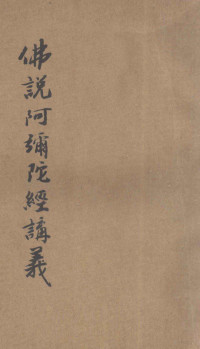 佛説阿彌陀經講義